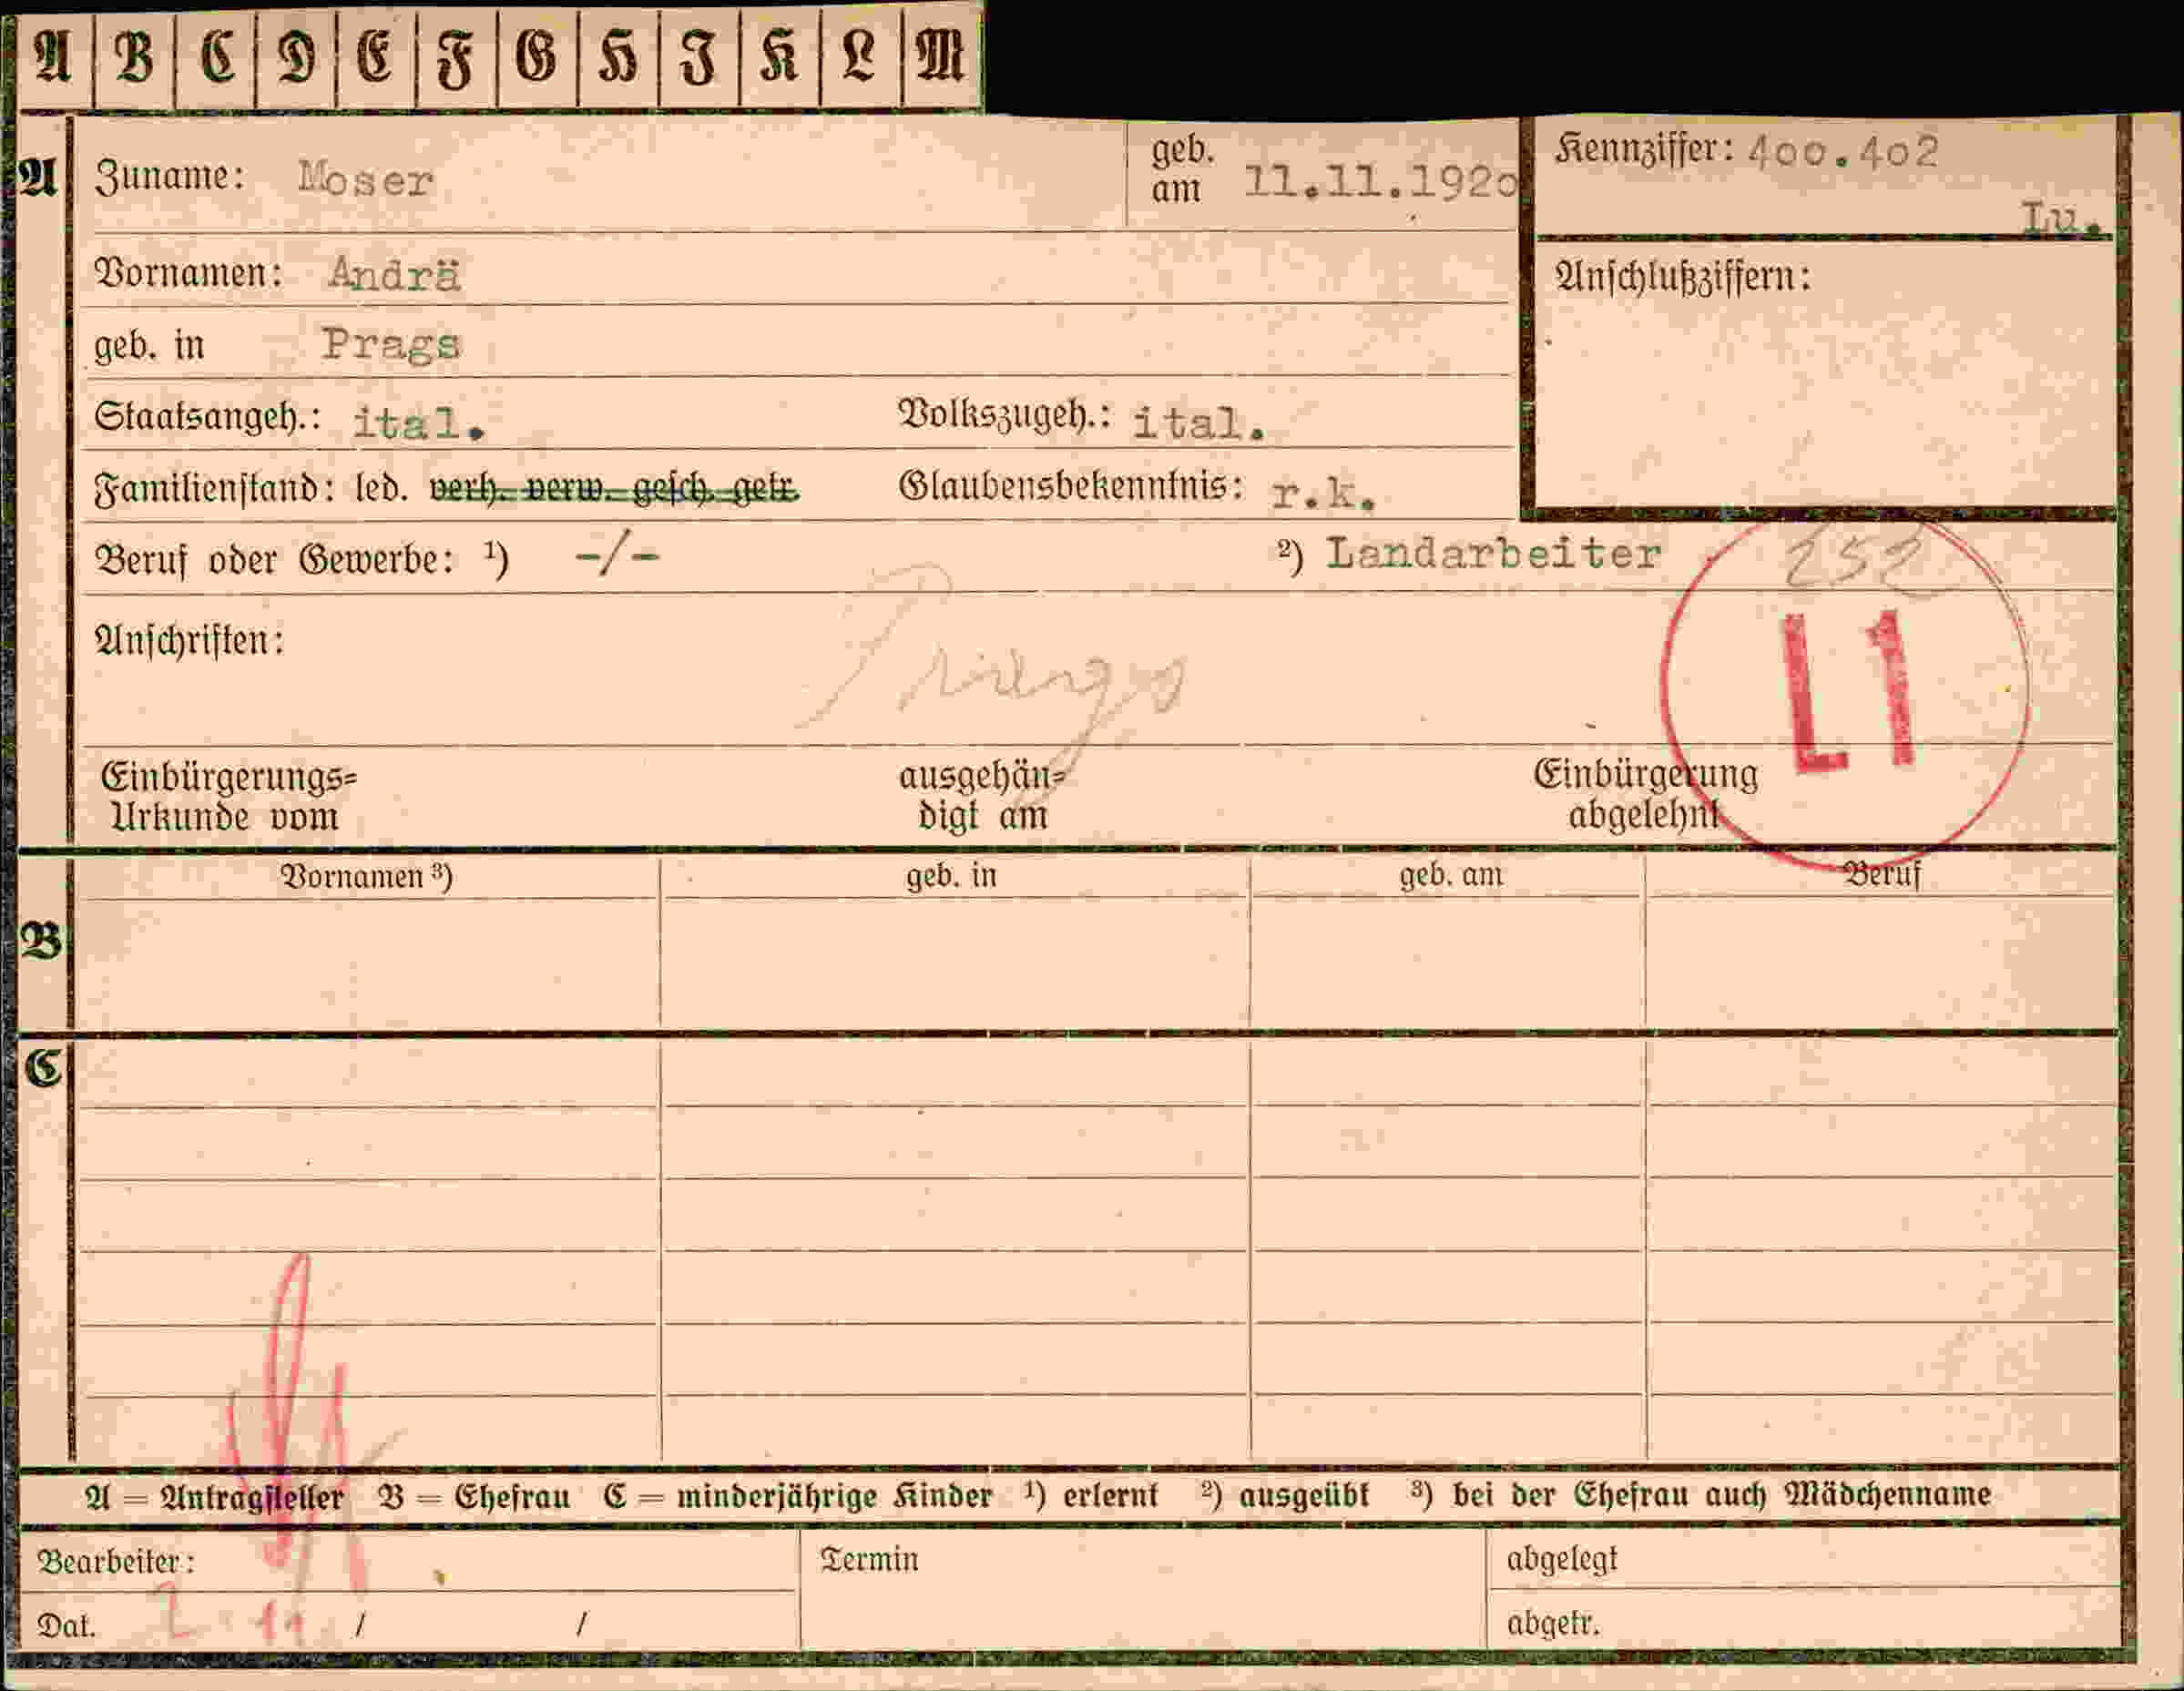 A B C D E F G H I K L M
A Zuname: Moser geb. am 11.11.1920 Kennziffer: 400.402
Lu.
Vornamen: Andrä Anschlußziffern:
geb. in Prags
Staatsangeh.: ital. Volkszugeh.: ital.
Familienstand: led. verh. verw. gesch. getr. Glaubensbekenntnis: r.k.
Beruf oder Gewerbe: ¹) -/- ²) Landarbeiter 252
L1
Anschriften: Prags
Einbürgerungs= ausgehän= Einbürgerung
Urkunde vom digt am abgelehnt
Vornamen ³) geb. in geb. am Beruf
B
C
A = Antragsteller B = Ehefrau C = minderjährige Kinder ¹) erlernt ²) ausgeübt ³) bei der Ehefrau auch Mädchenname
Bearbeiter: Termin abgelegt
Dat. 2 11 / / abgetr.